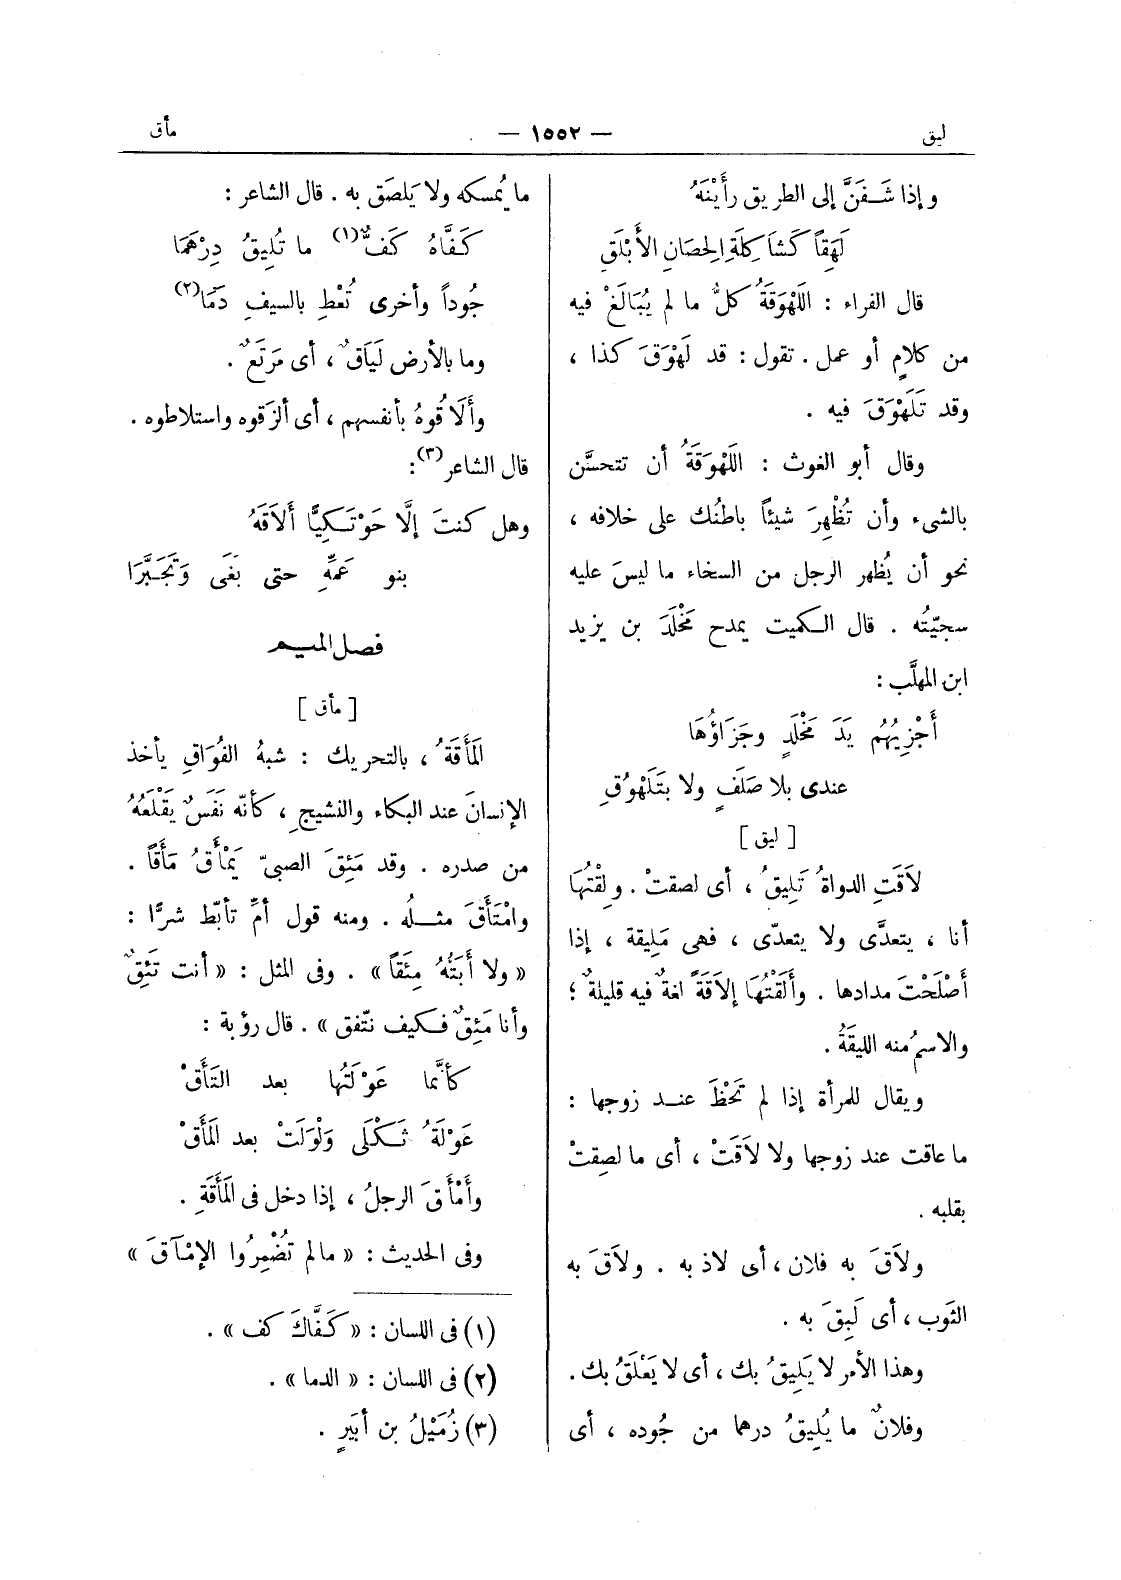 ليق
— ١٥٥٢ —
مأق
وإذا شَفَنَّ إلى الطريق رأَيْنَهُ
لَهِقاً كَشاَكِلَةِ الحِصَانِ الأَبْلَقِ
قال الفراء : اللَهْوَقَةُ كلُّ ما لم يُبَالَغْ فيه
من كلامٍ أو عمل . تقول : قد لَهْوَقَ كذا ،
وقد تَلَهْوَقَ فيه .
وقال أبو الغوث : اللَهْوَقَةُ أن تتحسَّن
بالشىء وأن تُظْهِرَ شيئاً باطنُك على خلافه ،
نحو أن يُظهر الرجل من السخاء ما ليسَ عليه
سجيّتُه . قال الكميت يمدح مَخْلَدَ بن يزيد
ابن المهلَّب :
أَجْزِيُهُم يَدَ مَخْلَدٍ وجَزَاؤُهَا
عندى بلا صَلَفٍ ولا بتَلَهْوُقِ
[ ليق ]
لاَقَتِ الدواةُ تَلِيقُ ، أى لصقتْ . ولِقْتُهَا
أنا ، يتعدَّى ولا يتعدّى ، فهى مَلِيقة ، إذا
أَصْلَحْتَ مدادها . وأَلَقْتُهَا إلاَقَةً لغةٌ فيه قليلةٌ ؛
والاسمُ منه الليقَةُ .
ويقال للمرأة إذا لم تَحْظَ عند زوجها :
ما عاقت عند زوجها ولا لاَقَتْ ، أى ما لصِقتْ
بقلبه .
ولاَقَ به فلان ، أى لاذ به . ولاَقَ به
الثَوب ، أى لَبِقَ به .
وهذا الأمر لا يَلِيقُ بك ، أى لا يَعْلَقُ بك .
وفلانٌ ما يُلِيقُ درهما من جُوده ، أى
ما يُمسكه ولا يَلصَق به . قال الشاعر :
كَفَّاهُ كَفٌّ(١) ما تُلِيقُ دِرْهَمَا
جُوداً وأخرى تُعْطِ بالسيفِ دَمَا(٢)
وما بالأرض لَيَاقٌ ، أى مَرتَعٌ .
وأَلَاقُوهُ بأنفسهم ، أى ألزَقوه واستلاطوه .
قال الشاعر(٣) :
وهل كنتَ إلَّا حَوْتَكِيًّا أَلاَقَهُ
بنو عَمِّهِ حتى بَغَى وَتَجَبَّرَا
فصل الميم
[ مأق ]
المَأَقَةُ ، بالتحريك : شبهُ الفُوَاقِ يأخذ
الإنسانَ عند البكاء والنشيجِ ، كأنّه نَفَسٌ يَقْلَعُهُ
من صدره . وقد مَئِقَ الصبىّ يَمْأَقُ مَأَقاً .
وامْتَأَقَ مثلُه . ومنه قول أمِّ تأبّط شرًّا :
« ولا أَبَتُّهُ مِئَقاً » . وفى المثل : « أنت تَئِقٌ
وأنا مَئِقٌ فكيف نتّفق » . قال رؤبة :
كأنَّما عَوْلَتُها بعد التَأَقْ
عَوْلَةُ ثَكْلَى وَلْوَلَتْ بعد المَأَقْ
وأَمْأَقَ الرجلُ ، إذا دخل فى المَأَقَةِ .
وفى الحديث : « مالم تُضْمِرُوا الإمْآقَ »
(١) فى اللسان : « كَفَّاكَ كف » .
(٢) فى اللسان : « الدما » .
(٣) زُمَيْلُ بن أبَيرٍ .